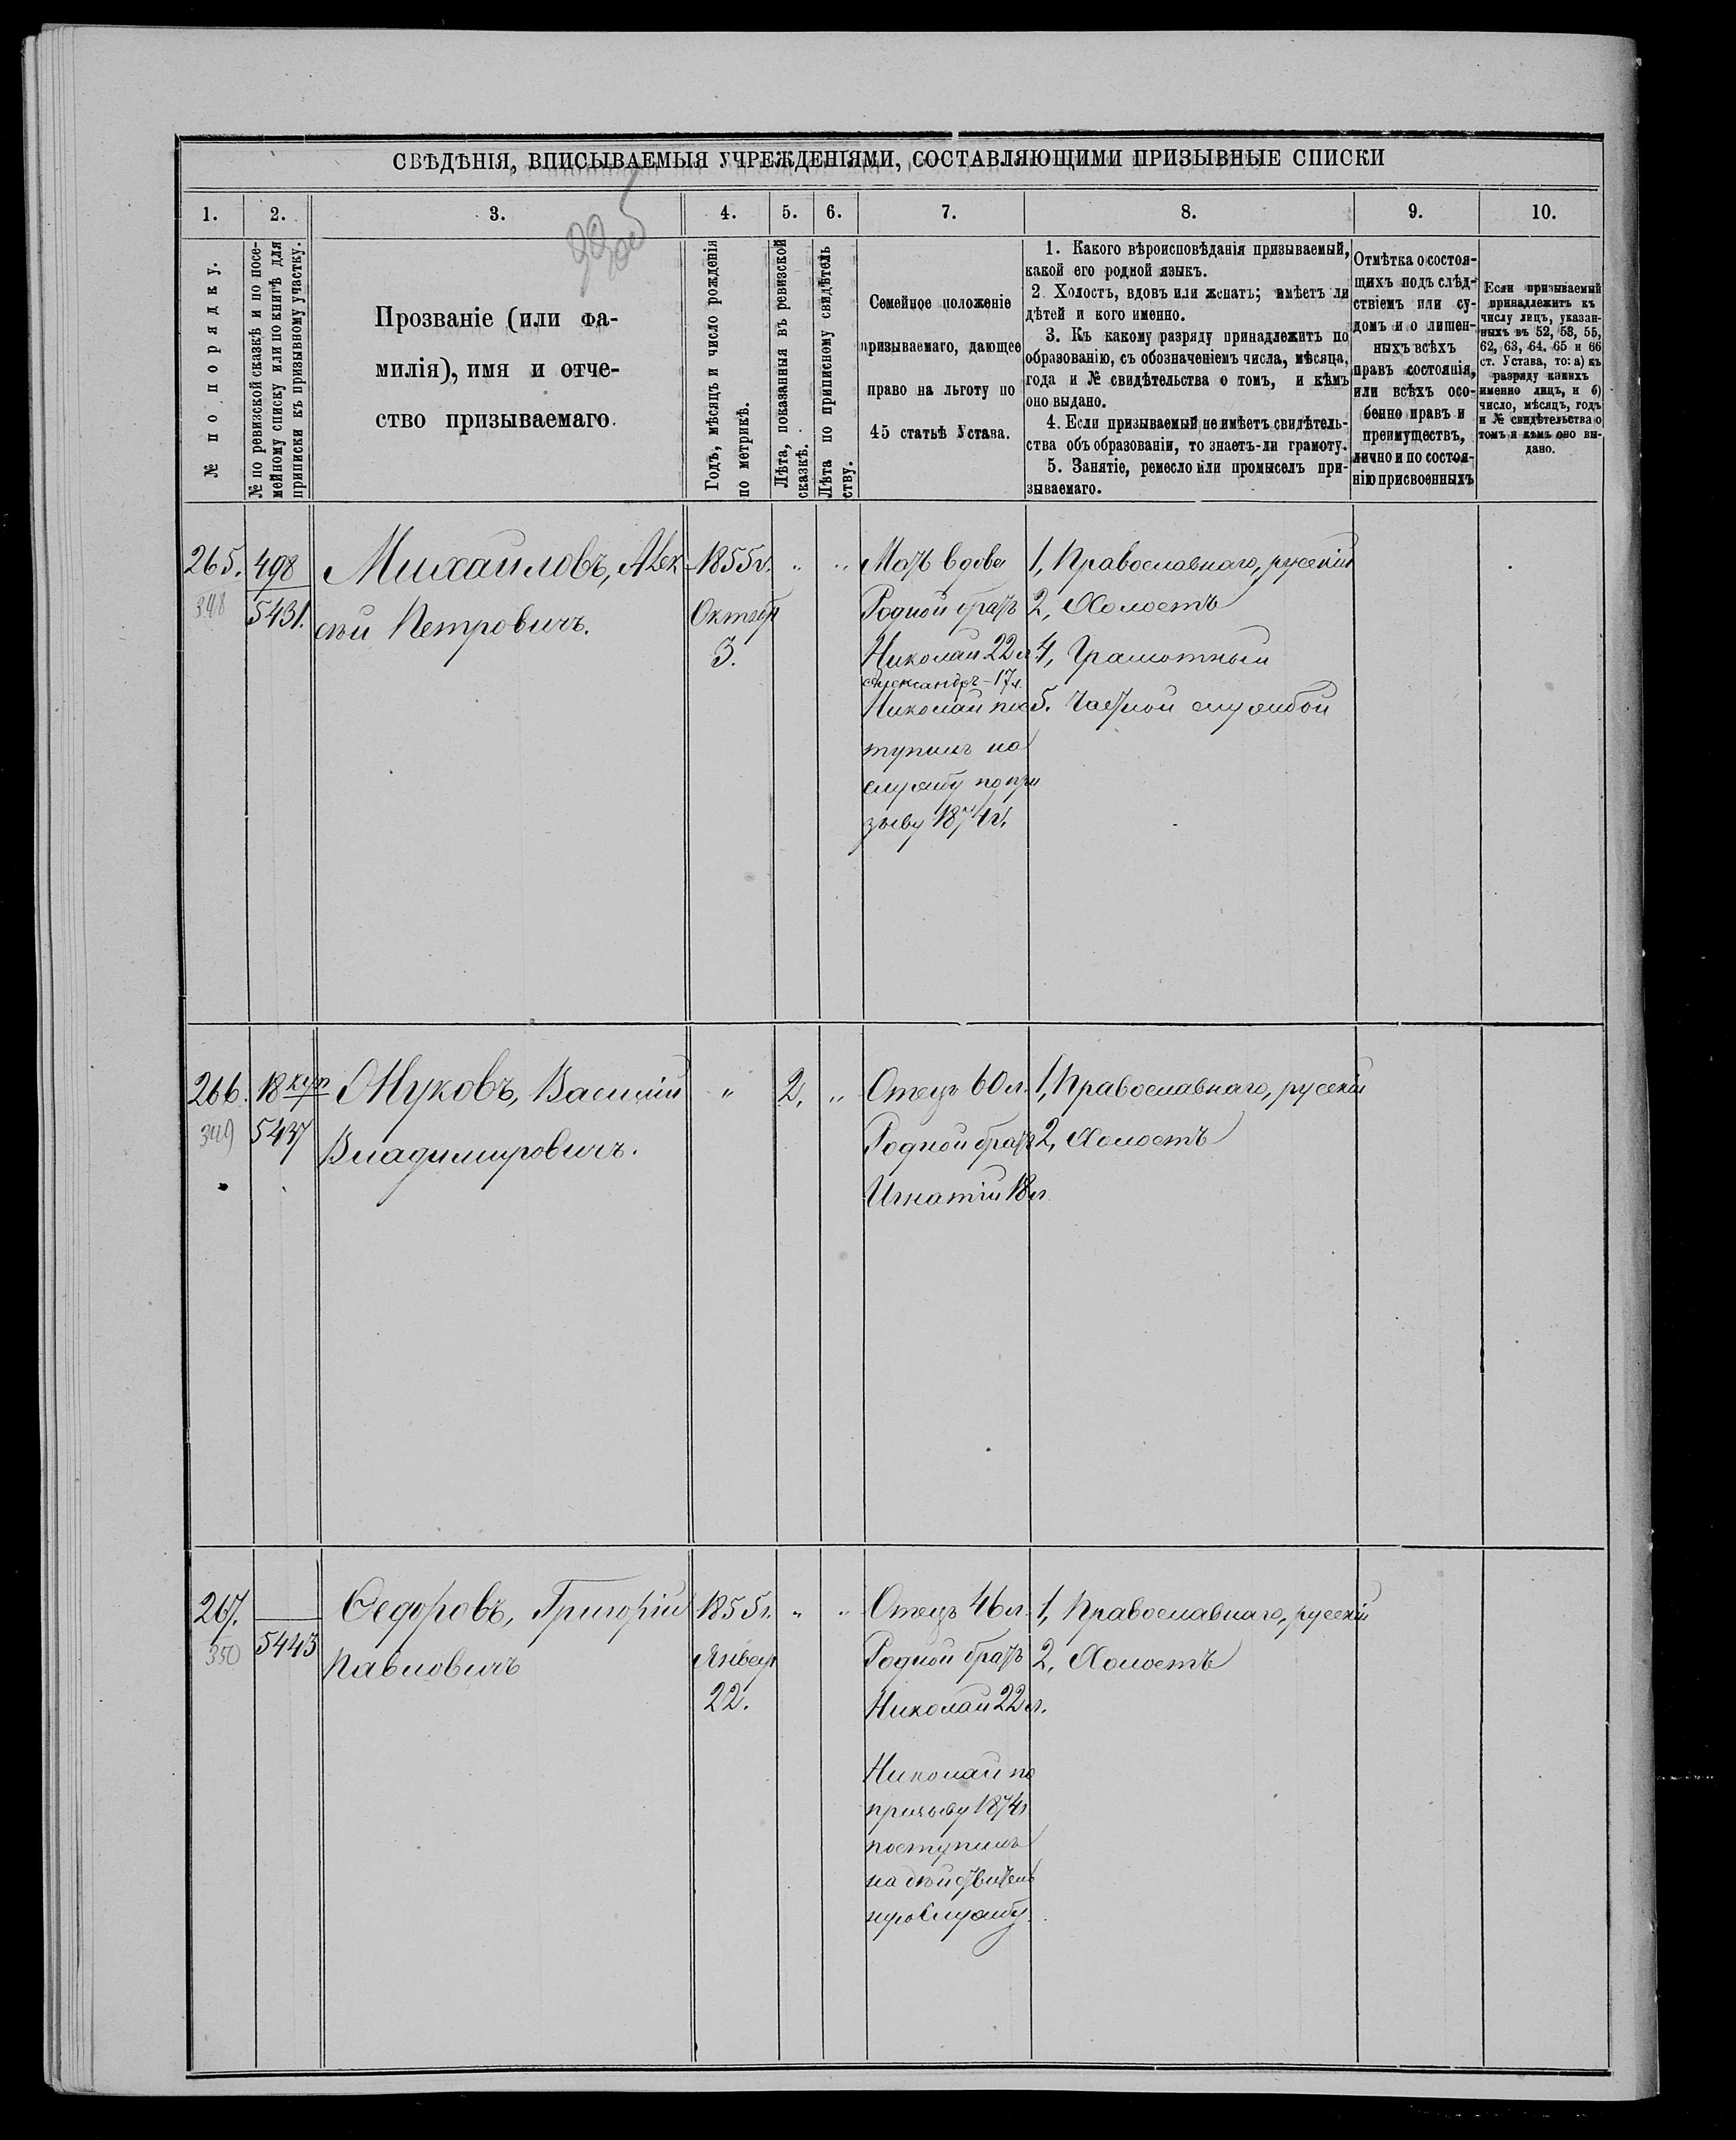 СВѢДѢНІЯ, ВПИСЫВАЕМЫЯ УЧРЕЖДЕНІЯМИ, СОСТАВЛЯЮЩИМИ ПРИЗЫВНЫЕ СПИСКИ
1. 2. 3. 4. 5. 6. 7. 8. 9. 10.
№ по порядку.
№ по ревизской сказкѣ и по посе-
мейному списку или по книгѣ для
приписки къ призывному участку.
Прозваніе (или фа-
милія), имя и отче-
ство призываемаго.
Годъ, мѣсяцъ и число рожденія
по метрикѣ.
Лѣта, показанныя въ ревизской
сказкѣ.
Лѣта по приписному свидѣтель
ству.
Семейное положеніе
призываемаго, дающее
право на льготу по
45 статьѣ Устава.
1. Какого вѣроисповѣданія призываемый,
какой его родной языкъ.
2 Холостъ, вдовъ или женатъ; имѣетъ ли
дѣтей и кого именно.
3. Къ какому разряду принадлежитъ по
образованію, съ обозначеніемъ числа, мѣсяца,
года и № свидѣтельства о томъ, и кѣмъ
оно выдано.
4. Если призываемый не имѣетъ свидѣтель-
ства объ образованіи, то знаетъ-ли грамоту.
5. Занятіе, ремесло или промыселъ при-
зываемаго.
Отмѣтка о состоя-
щихъ подъ слѣд-
ствіемъ или су-
домъ и о лишен-
ныхъ всѣхъ
правъ состоянія,
или всѣхъ осо-
бенно правъ и
преимуществъ,
лично и по состоя-
нію присвоенныхъ
Если призываемый
принадлежитъ къ
числу лицъ, указан-
ныхъ въ 52, 53, 55,
62, 63, 64. 65 и 66
ст. Устава, то: а) къ
разряду какихъ
именно лицъ, и б)
число, мѣсяцъ, годъ
и № свидѣтельства о
томъ и кѣмъ оно вы-
дано.
265.
348
498
5431.
Михайловъ, Алек
сѣй Петровичъ.
1855г.
Октябр
3.
" "
Мать вдова
Родной братъ
Николай 22 л
Александръ - 17 л.
Николай пос
тупилъ на
службу по при
зыву 1874 г.
1, Православнаго, русскій
2, Холостъ
4, Грамотный
5. Частной службой
266.
349
18 куп
5437
Жуковъ, Василій
Владимировичъ.
" 2, "
Отецъ 60 л.
Родной братъ
Игнатій 18 л
1, Православнаго, русскій
2, Холостъ
267.
350
5443
Ѳедоровъ, Григорій
Павловичъ
1855г.
Январ
22.
" "
Отецъ 46 л.
Родной братъ
Николай 22 л.
Николай по
призыву 1874 г
поступилъ
на дѣйствитель
ную службу.
1, Православнаго, русскій
2, Холостъ